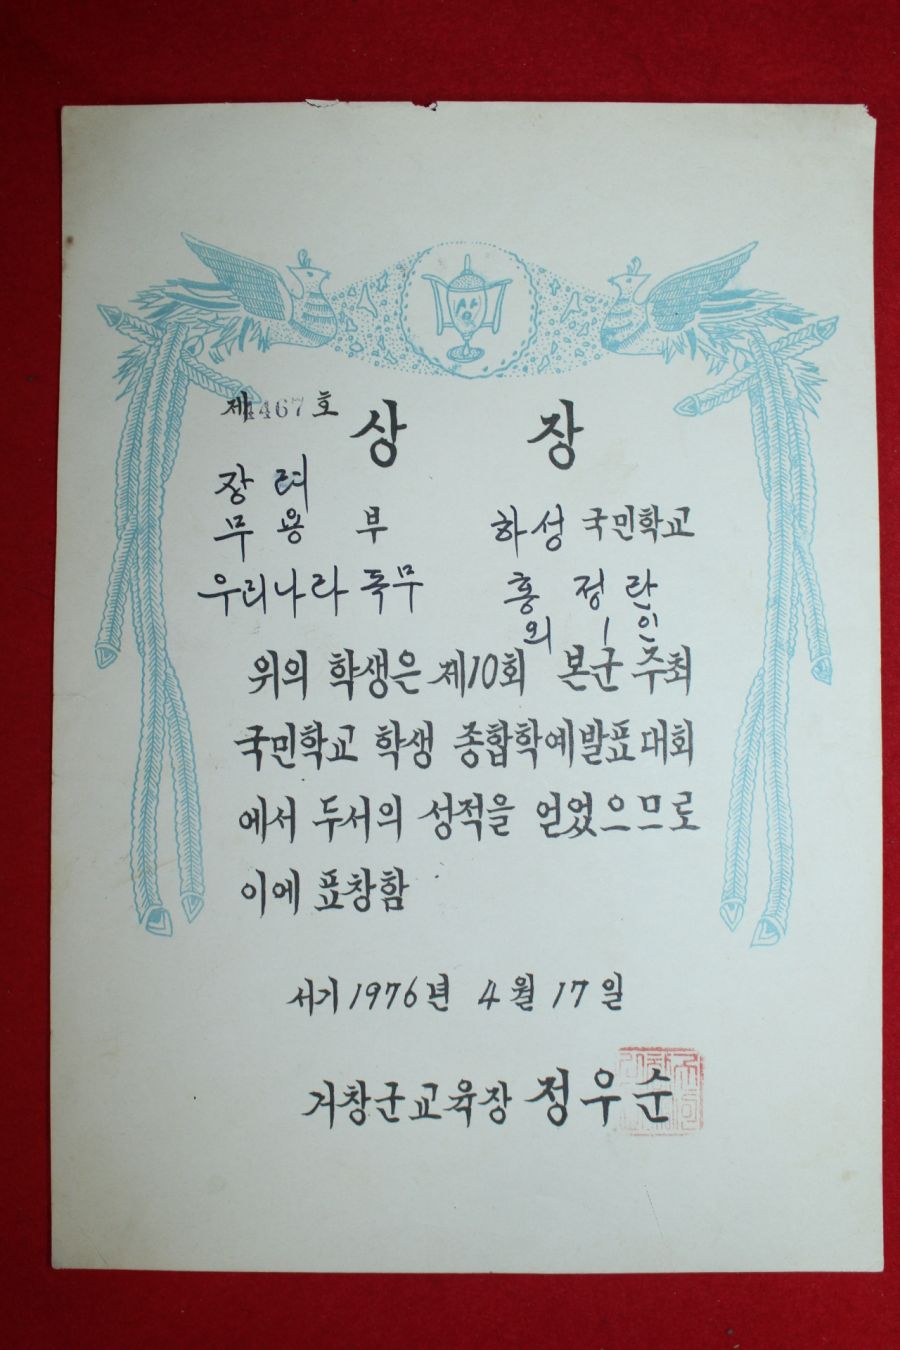 제4467호
상 장
장려
무용 부 하성 국민학교
우리나라 독무 홍정란
외 1인
위의 학생은 제10회 본군 주최
국민학교 학생 종합학예발표대회
에서 두서의 성적을 얻었으므로
이에 표창함
서기 1976년 4월 17일
거창군교육장 정우순